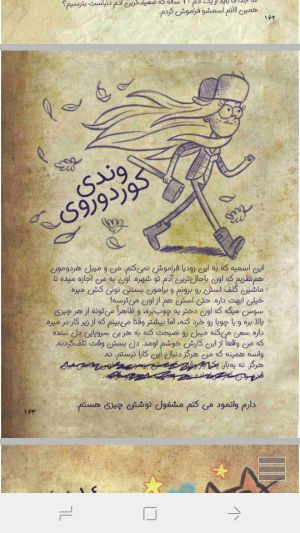 همین الانم اسمشو فراموش کردم.
۱۶۲
وندی
کوردوروی
این اسمیه که به این زودیا فراموش نمی‌کنم. من و میبل هردومون
هم‌نظریم که اون باحال‌ترین آدم تو شهره. اون به من اجازه میده تا
ماشین گلف استن رو برونم و برامون بستنی نونی کش میره.
خیلی ابهت داره. حتی استن هم از اون می‌ترسه!
سوس میگه که اون دختر یه چوب‌بره، و ظاهرا می‌تونه از هر چیزی
بالا بره و با چوبا رو خرد کنه، اما بیشتر وقتا می‌بینم که از زیر کار در میره
داره سعی می‌کنه میبل رو نصیحت کنه یه هر بی سروپایی دل نبنده
که من واقعا از این کارش خوشم اومد. دل بستن وقت تلف‌کردنه.
واسه همینه که من هرگز دنبال این کارا نیستم. نه.
هرگز نه یه‌بار.
دارم وانمود می کنم مشغول نوشتن چیزی هستم.
۱۶۳